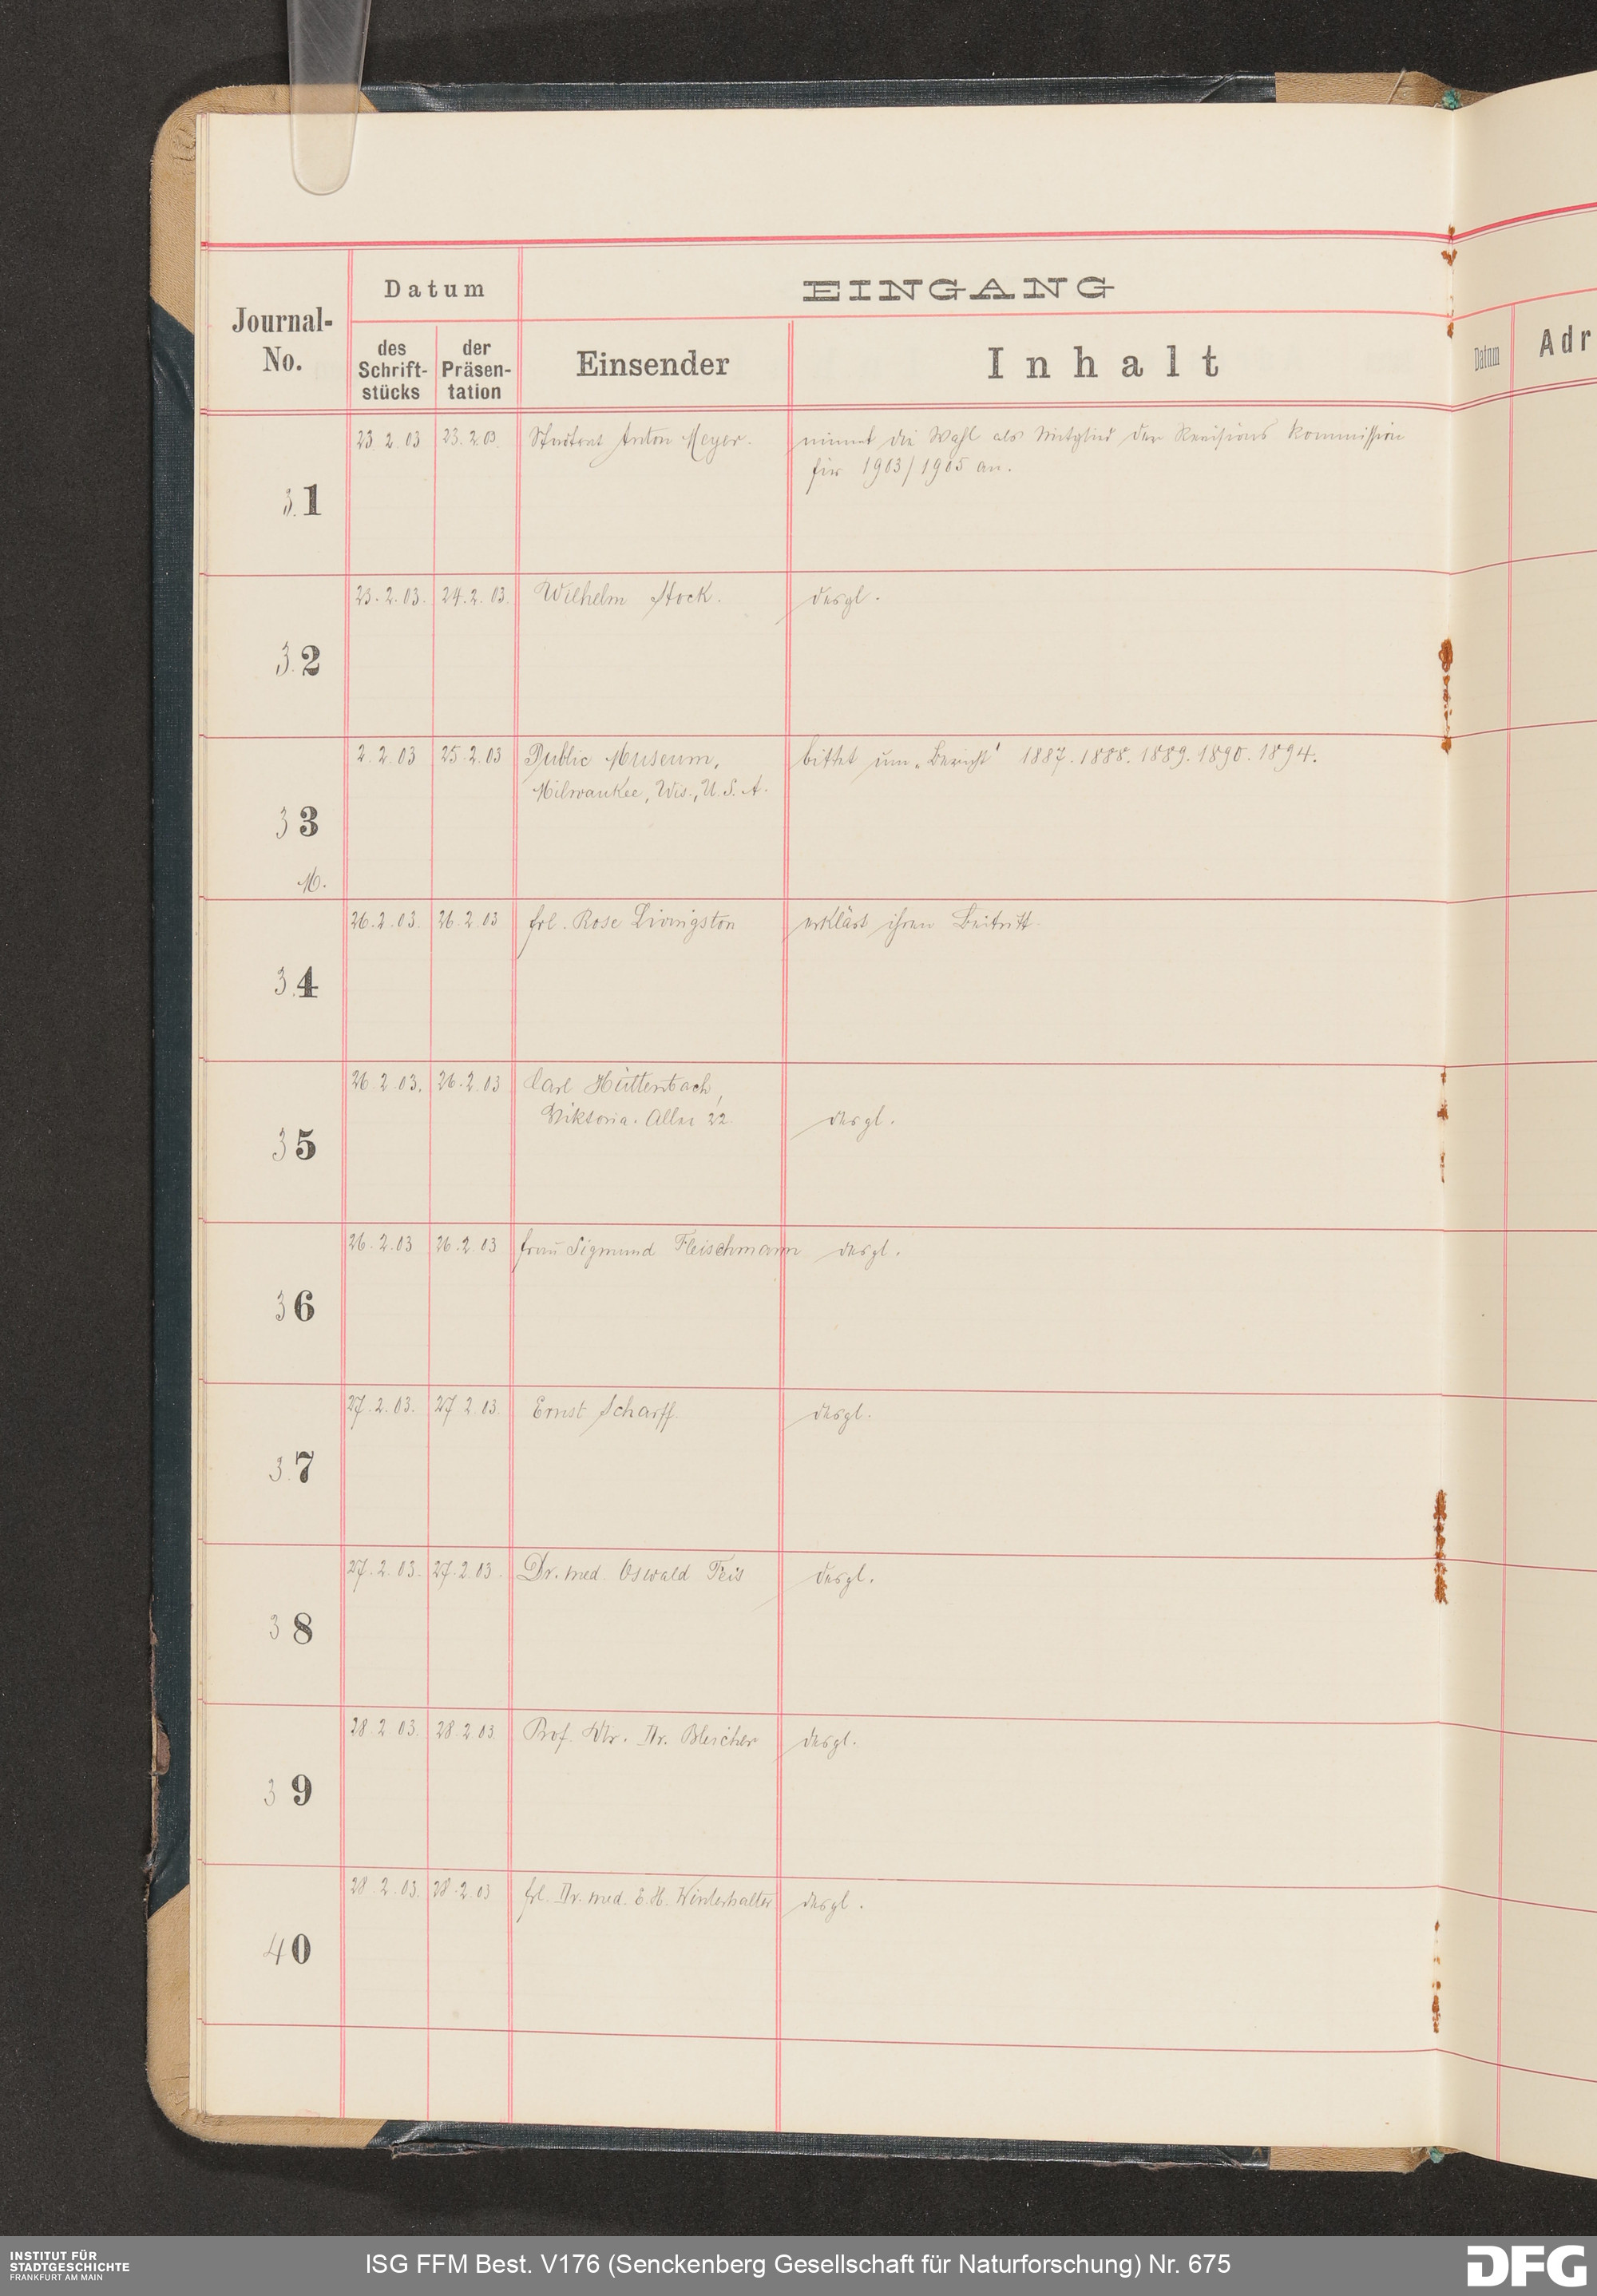 Datum
EINGANG
Journal-
No.
des
Schrift-
stücks
der
Präsen-
tation
Einsender
Inhalt
Datum
Adr
31
23.2.03
23.2.03.
Stadtrat Anton Meyer.
nimmt die Wahl als Mitglied der Revisions Kommission
für 1903/1905 an.
32
23.2.03.
24.2.03.
Wilhelm Stock.
desgl.
33
M.
2.2.03
25.2.03
Public Museum,
Milwaukee, Wis., U.S.A.
bittet um „Bericht" 1887. 1888. 1889. 1890. 1894.
34
26.2.03.
26.2.03
Frl. Rose Livingston
erklärt ihren Beitritt.
35
26.2.03.
26.2.03
Carl Hüttenbach,
Viktoria-Allee 22.
desgl.
36
26.2.03
26.2.03
Frau Sigmund Fleischmann
desgl.
37
27.2.03.
27.2.03.
Ernst Scharff.
desgl.
38
27.2.03.
27.2.03.
Dr. med. Oswald Feis
desgl.
39
28.2.03.
28.2.03.
Prof. Dr. Bleicher
desgl.
40
28.2.03.
28.2.03
Frl. Dr. med. E.H. Winterhalter
desgl.
INSTITUT FÜR
STADTGESCHICHTE
FRANKFURT AM MAIN
ISG FFM Best. V176 (Senckenberg Gesellschaft für Naturforschung) Nr. 675
DFG